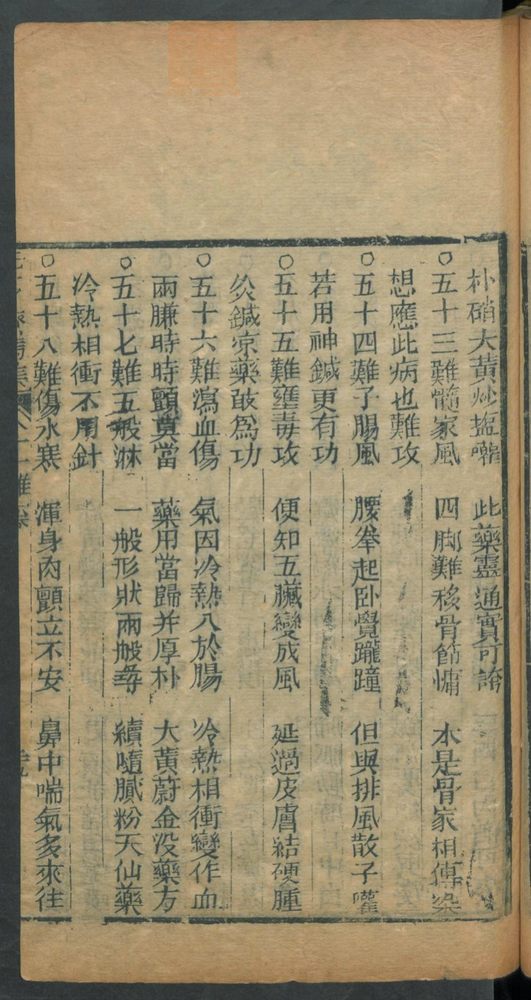 朴硝大黃炒塩㗜　此藥靈通實可誇
○五十三難髓家風　四脚難移骨節慵　本是骨家相傳染
想應此病也難攻
○五十四難子腸風　腰拳起卧覺蹣蹱　但與排風散子嚾
若用神鍼更有功
○五十五難壅毒攻　便知五臟變成風　延過皮膚結硬腫
灸鍼凉藥敢爲功
○五十六難瀉血傷　氣因冷熱入於腸　冷熱相衝變作血
兩臁時時顫莫當　藥用當歸并厚朴　大黃蔚金没藥方
○五十七難五般淋　一般形狀兩般尋　續隨膩粉天仙藥
冷熱相衝不用針
○五十八難傷水寒　渾身肉顫立不安　鼻中喘氣多來往